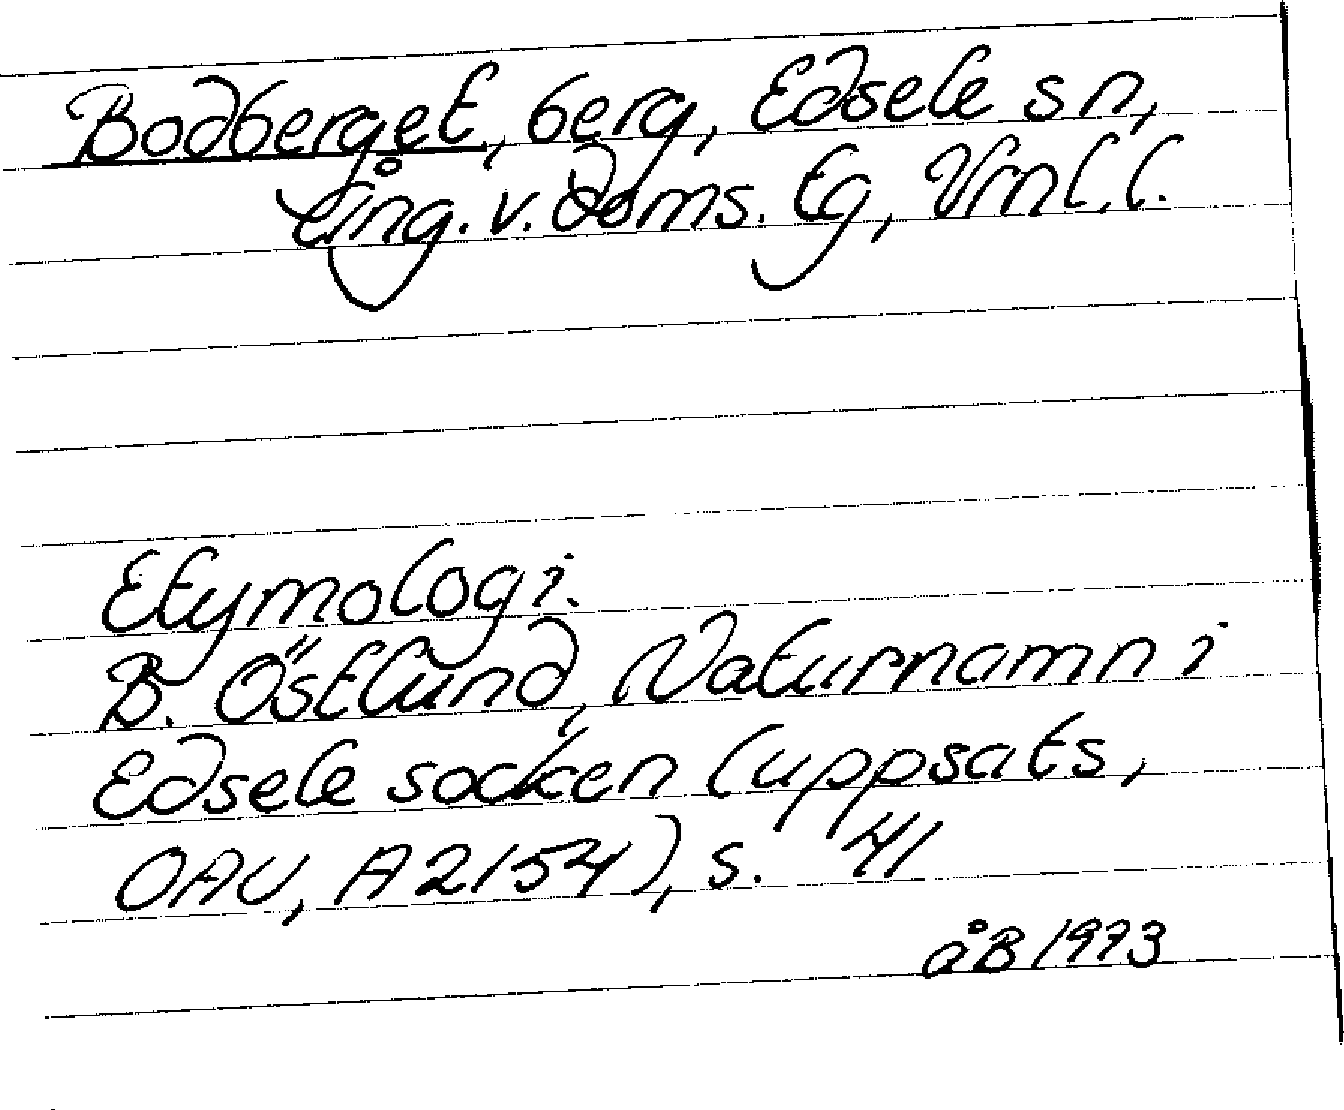 Bodberget, berg, Edsele sn,
Ång. v. doms. tg, Vrnl. l.
Etymologi.
B. Östlund, Naturnamn i
Edsele socken (uppsats,
OAU, A 2154), s. 41
åB 1973